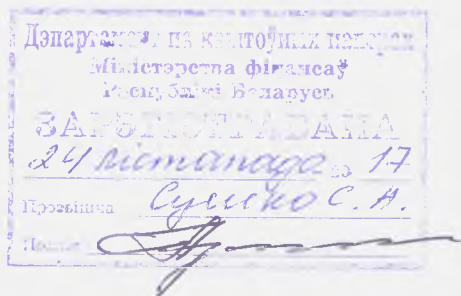 Дэпартамент па каштоўных паперах
Міністэрства фінансаў
Рэспублікі Беларусь
ЗАРЭГІСТРАВАНА
24 лістапада 20 17
Прозвішча Сушко С. А.
Подпіс